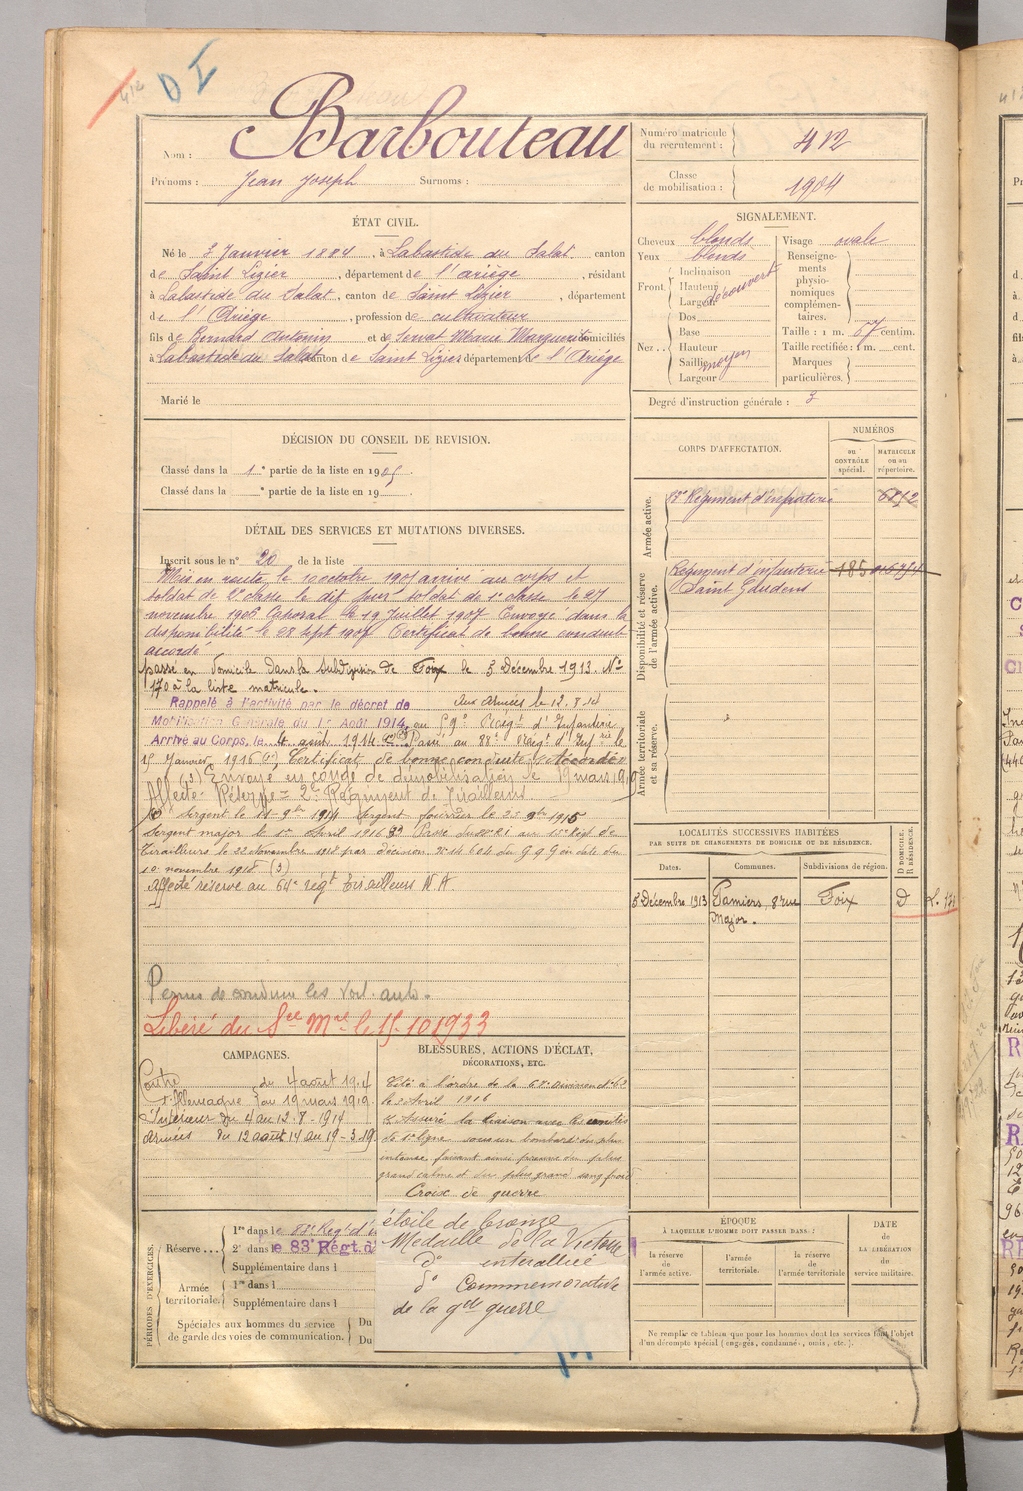 412
D I
Nom : Barbouteau
Prénoms : Jean Joseph Surnoms :
Numéro matricule du recrutement : 412
Classe de mobilisation : 1904
ÉTAT CIVIL.
Né le 3 Janvier 1884, à Labastide du Salat canton
de Saint Lizier, département de l'ariège, résidant
à Labastide du Salat, canton de Saint Lizier, département
de l'Ariège, profession de cultivateur
fils de Bernard Antonin et de Servat Marie Marguerite domiciliés
à Labastide du Salat canton de Saint Lizier département de l'Ariége
Marié le
SIGNALEMENT.
Cheveux blonds Visage ovale
Yeux blonds
Front. Inclinaison
Hauteur
Largeur découvert
Nez .. Dos
Base
Hauteur
Saillie moyen
Largeur
Renseignements physionomiques complémentaires.
Taille : 1 m. 67 centim.
Taille rectifiée : 1 m. cent.
Marques particulières.
Degré d'instruction générale : 3
DÉCISION DU CONSEIL DE REVISION.
Classé dans la 1e partie de la liste en 1905.
Classé dans la e partie de la liste en 19 .
DÉTAIL DES SERVICES ET MUTATIONS DIVERSES.
Inscrit sous le n° 20 de la liste
Mis en route le 10 octobre 1905 arrivé au corps et
soldat de 2e classe le dit jour soldat de 1e classe le 27
novembre 1906 Caporal le 19 Juillet 1907 Envoyé dans la
disponibilité le 28 sept 1907 Certificat de bonne conduite
accordé
passé en domicile dans la subdivision de Foix le 5 Décembre 1913. No
170 à la liste matricule.
Rappelé à l'activité par le décret de Aux Armées le 12.8.14
Mobilisation Générale du 1er Août 1914, au 59e Régt d'Infanterie
Arrivé au Corps, le 4 août 1914 Passé au 88e Régt d'Infrie le
15 Janvier 1916 Certificat de bonne conduite "Accordé"
Aff (3) Envoyé en congé de démobilisation le 19 mars 1919
Affecté Réserve = 2e Régiment de Tirailleurs
Sergent le 11-9bre 1914 Sergent fourrier le 1915
Sergent major le 1er Avril 1916 Passé du 88e RI au 15e Régt de
Tirailleurs le 22 Novembre 1918 par décision N° 14604 du G.Q.G en date du
10 novembre 1918 (3)
Affecté réserve au 64e régt tirailleurs N.A.
Permis de conduire les voit. auto.
Libéré du See Mre le 15.10.1933
CORPS D'AFFECTATION.
NUMÉROS
au CONTRÔLE spécial.
MATRICULE ou au répertoire.
Armée active.
83e Régiment d'infanterie 6812
Disponibilité et réserve de l'armée active.
Régiment d'infanterie 185
Saint Gaudens
Armée territoriale et sa réserve.
LOCALITÉS SUCCESSIVES HABITÉES
PAR SUITE DE CHANGEMENTS DE DOMICILE OU DE RÉSIDENCE.
Dates. Communes. Subdivisions de région. D DOMICILE. R RÉSIDENCE.
5 Décembre 1913 Pamiers, 8 rue Major. Foix D
CAMPAGNES.
Contre l'Allemagne du 4 août 1914
au 19 mars 1919
Intérieur du 4 au 12.8-1914
Armées du 12 août 14 au 19-3-19
BLESSURES, ACTIONS D'ÉCLAT,
DÉCORATIONS, ETC.
Cité à l'ordre de la 68e Division
le 2 Avril 1916
A Assuré la liaison avec les unités
de 1e ligne sous un bombardt des plus
intense faisant ainsi preuve du plus
grand calme et du plus grand sang froid
Croix de guerre
étoile de bronze
Médaille de la Victoire
d° interalliée
d° Commémorative
de la gde guerre
PÉRIODES D'EXERCICES.
Réserve... 1re dans le 83e Régt d'
2e dans le 83e Régt. d'
Supplémentaire dans l
Armée territoriale. 1re dans l
Supplémentaire dans l
Spéciales aux hommes du service
de garde des voies de communication. Du
Du
ÉPOQUE
À LAQUELLE L'HOMME DOIT PASSER DANS :
la réserve de l'armée active.
l'armée territoriale.
la réserve de l'armée territoriale
DATE
de
LA LIBÉRATION
du
service militaire.
Ne remplir ce tableau que pour les hommes dont les services font l'objet
d'un décompte spécial (engagés, condamnés, omis, etc.).